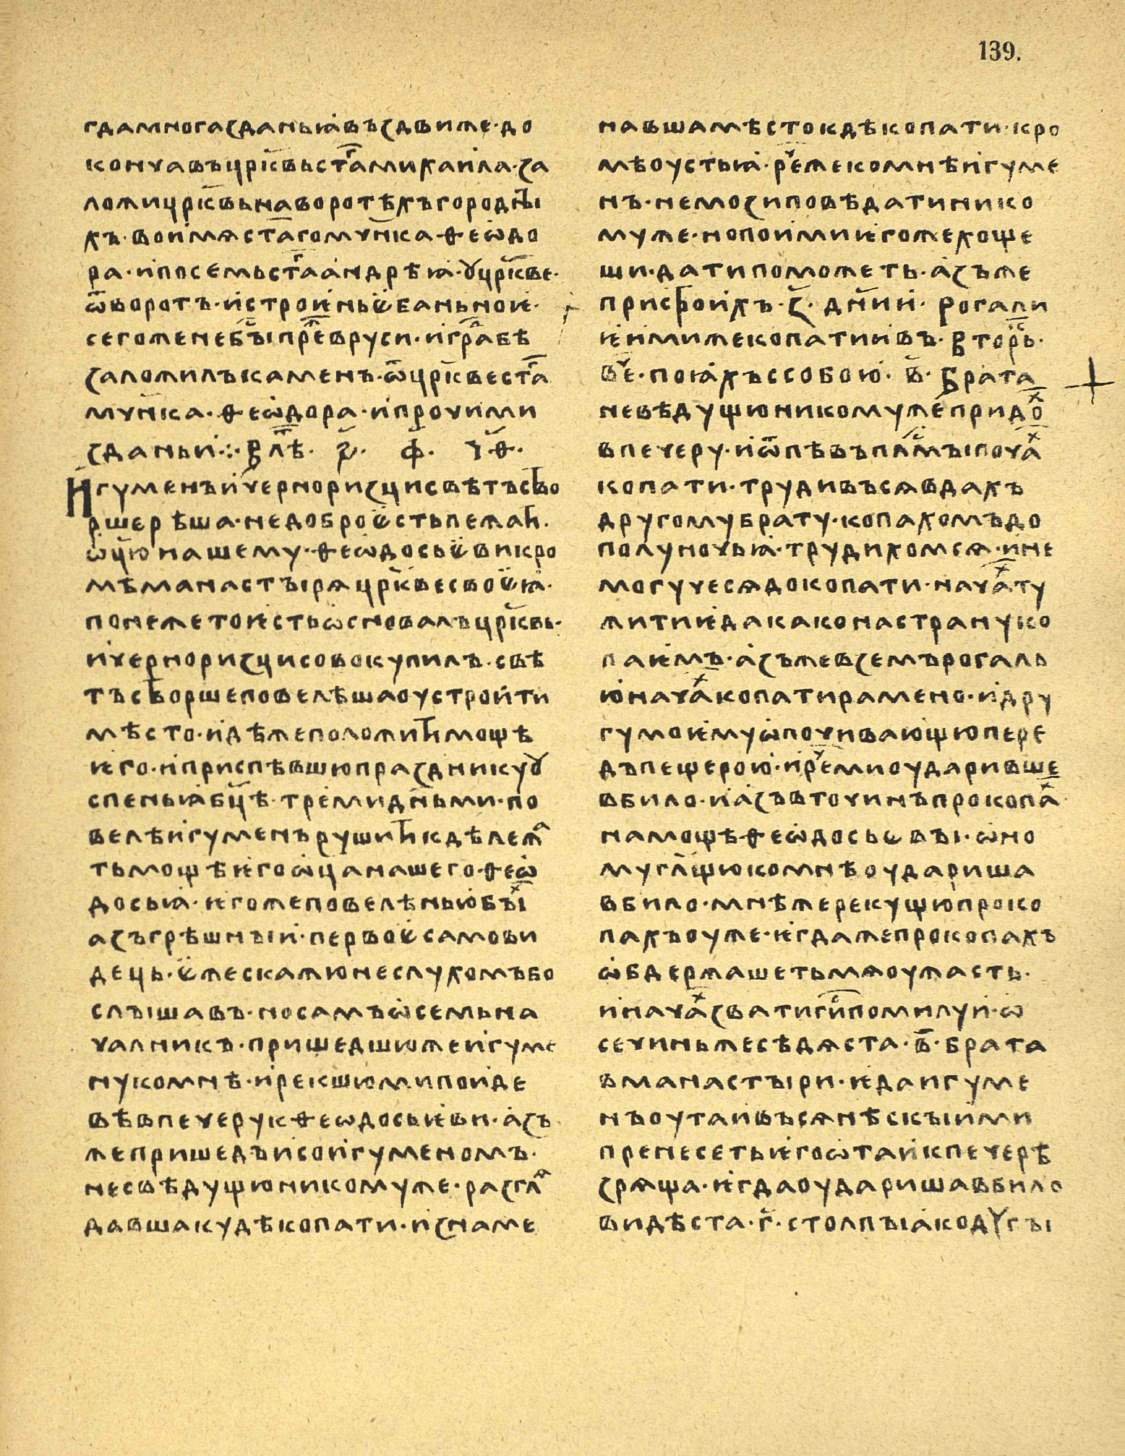 139.
гдамногаꙁданьꙗвъꙁдвиже·до
кончавъцр҃квьст҃гамихаила·ꙁа
ложицр҃квьнаворотѣхъгородны
хъ·воимѧст҃агомуч҃нка·феѡдо
ра·ипосемьст҃гаандрѣꙗ·ѹцр҃кве·
ѿворотъ·истроиньѥбаньноѥ·
сегоженебы̑преж̑вруси·иград̑бѣ
ꙁаложилъкаменъ·ѿцр҃квест҃га
муч҃нка·феѡдора·ипрочими
ꙁданьи·:·Влѣт̑·ꙅ҃·ф҃·ч҃·ф҃·
Игуменъичерноризцисвѣтъство
ршерѣша·недоброѥстьлежат̑и·
ѡц҃юнашему·феѡдосьѥвикро
мѣманастырѧцр҃квесвоѥꙗ·
понежетоѥстьѡсновалъцр҃квь·
ичерноризцисовокупилъ·свѣ
тъстворшеповелѣшаоустроити
мѣсто·идѣжеположит̑имощѣ
ѥго·иприспѣвшюпраꙁдникуѹ
спеньꙗбц҃ѣ·треми҃дньми·по
велѣигуменърушит̑икдѣлежа
тьмощѣѥгоѡц҃анашего·феѡ
досьꙗ·ѥгожеповелѣньюбых̑
аꙁъгрѣшныи·первоѥсамови
дець·ѥжескажюнеслухомъбо
слышавъ·носамъѡсемьна
чалникъ·пришедшюжеигуме
нукомнѣ·ирекшюмипоиде
вѣвпечерукфеѡдосьѥви·аꙁъ
жепришедъисоигуменомъ·
несвѣдущюникомуже·раꙁглѧ
давшакудѣкопати·иꙁнаме
навшамѣстокдѣкопати·кро
мѣоустьꙗ·реч̑жекомнѣигуме
нъ·немоꙁиповѣдатинико
муже·нопоимиѥгожехоще
ши·датиможеть·аꙁъже
пристроихъ·ꙁ҃·дн҃ии·рогали
ꙗимижекопатиивъ·вторн̑·
веч̑·поꙗхъссобою·в҃·брата
невѣдущюникомуже·придох̑
впечеру·иѿпѣвъпсл҃мыпочах̑
копати·трудивъсѧвдахъ
другомубрату·копахомъдо
полуночьꙗ·трудихомсѧ·ине
могучесѧдокопати·начах̑ту
житиѥдакаконастрануко
паѥмъ·аꙁъжевꙁемърогаль
юначах̑копатирамено·идру
гумоѥмуѡпочивающюпере
дъпещерою·иреч̑миоударивше
вбило·иаꙁъвточинъпрокопах̑
намощѣфеѡдосьѥвы·ѡно
мугл҃щюкомнѣоудариша
вбило·мнѣжерекущюпроко
пахъоуже·ѥгдажепрокопахъ
ѡбдержашетьмѧоужасть·
иначах̑ꙁватигс̑ипомилуи·ѡ
сечиньжесѣдѧста·в҃·брата
вманастыри·ѥдаигуме
ноутаивъсѧнѣскыими
пренесетьѥгоѡтаикпечерѣ
ꙁрѧща·ѥгдаоударишавбило
видѣста·г҃·столпыꙗкодугы